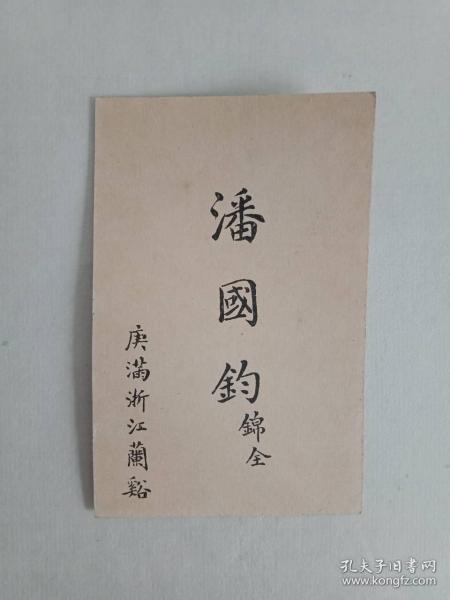 潘國鈞
錦全
庚滿浙江蘭谿
孔夫子旧书网
www.kongfz.com